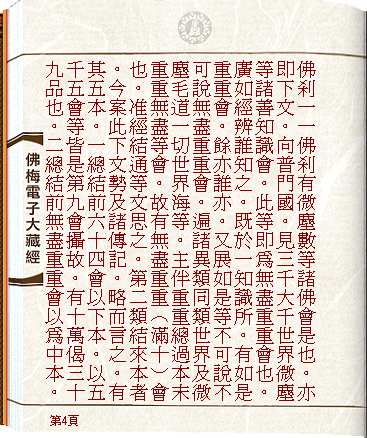 佛剎一一佛剎有微塵數等諸佛會是也。亦
即下文。向普門國。見三千大千世界微塵
等諸善知識會。此等即爲無盡重重會也。
廣如經辨誰知之。既於一知識所。有如是
重重會。餘亦誰亦。又展如是等不可說不
可說無盡重重會。遍諸異類同類世界及微
塵毛道一切世界海等。主伴重重總過本末
重重無盡等會。故有無盡重重（滿十）會
也。准經結通等文思之。第二類結來本者
。今案此下文勢及諸傳記。略而言之。有
其五本。一總結前六十四會以下本。以五
千五會等皆是第九會攝故。有十萬偈三十
九品也。二總結前無盡重重會以爲中本。
佛梅電子大藏經
第4頁